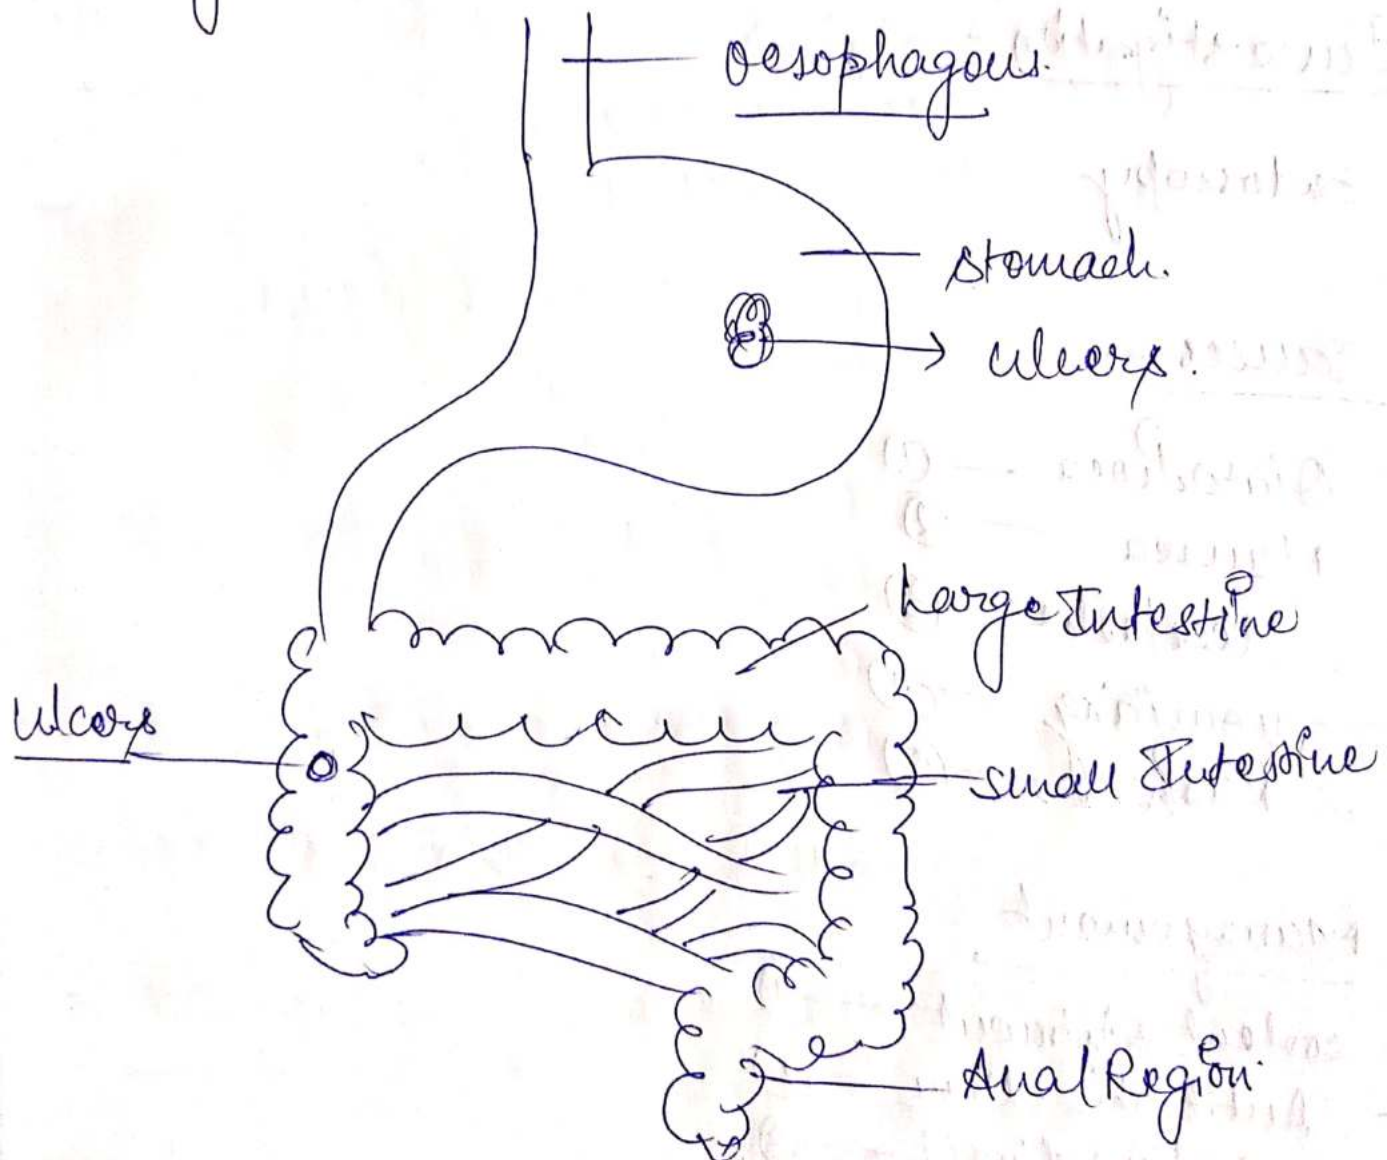 Oesophagous.
Stomach.
Ulcers.
Large Intestine
Ulcers
Small Intestine
Anal Region.